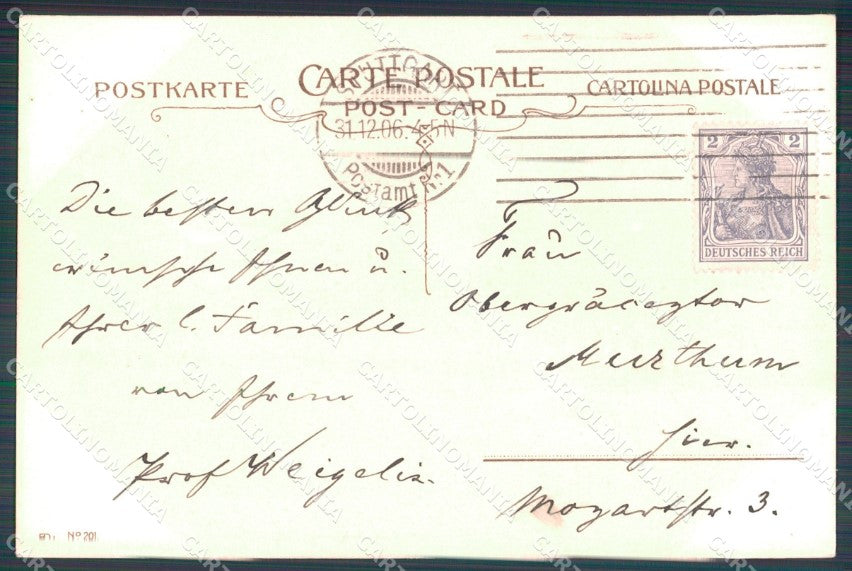 POSTKARTE
CARTE POSTALE
CARTOLINA POSTALE
POST-CARD
STUTTGART
31.12.06. 4-5N
Postamt No. 1
2 2
DEUTSCHES REICH
Die besten Glück
wünsche Ihnen u.
Ihrer l. Familie
von Ihrem
Prof Weigelin.
Frau
Oberpräceptor
hier.
Mozartstr. 3.
No 201
CARTOLINOMANIA